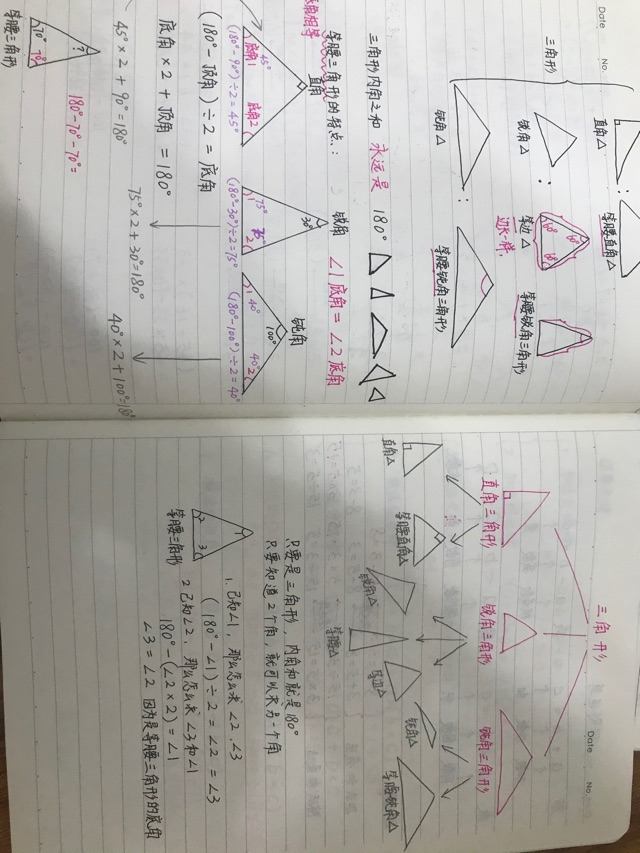 Date
No.
三角形
直角△
等腰直角△
锐角△
等边△
边长一样.
60°
60°
60°
等腰锐角三角形
钝角△
等腰钝角三角形
三角形内角之和 永远是 180°
等腰三角形的特点:
∠1底角=∠2底角
直角
锐角
钝角
底角1 45°
底角2
1 75°
75° 2
30°
1 40°
40° 2
100°
(180°-90°)÷2=45°
(180°-30°)÷2=75°
(180°-100°)÷2=40°
(180°-顶角)÷2=底角
底角×2+顶角=180°
45°×2+90°=180°
75°×2+30°=180°
40°×2+100°=18
70° 70°
?
等腰三角形
180°-70°-70°=
Date
No.
三角形
直角三角形
锐角三角形
钝角三角形
直角△
等腰直角△
锐角△
等腰△
等边△
钝角△
等腰钝角△
只要是三角形,内角和就是180°
只要知道2个角,就可以求另一个角
1
2
3
等腰三角形
1.已知∠1,那么怎么求∠2、∠3
(180°-∠1)÷2=∠2=∠3
2已知∠2,那么怎么求∠3和∠1
180°-(∠2×2)=∠1
∠3=∠2 因为是等腰三角形的底角